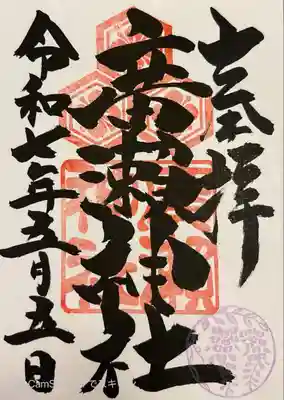 奉拝
廣瀬神社
令和七年五月五日
CamS でスキャン